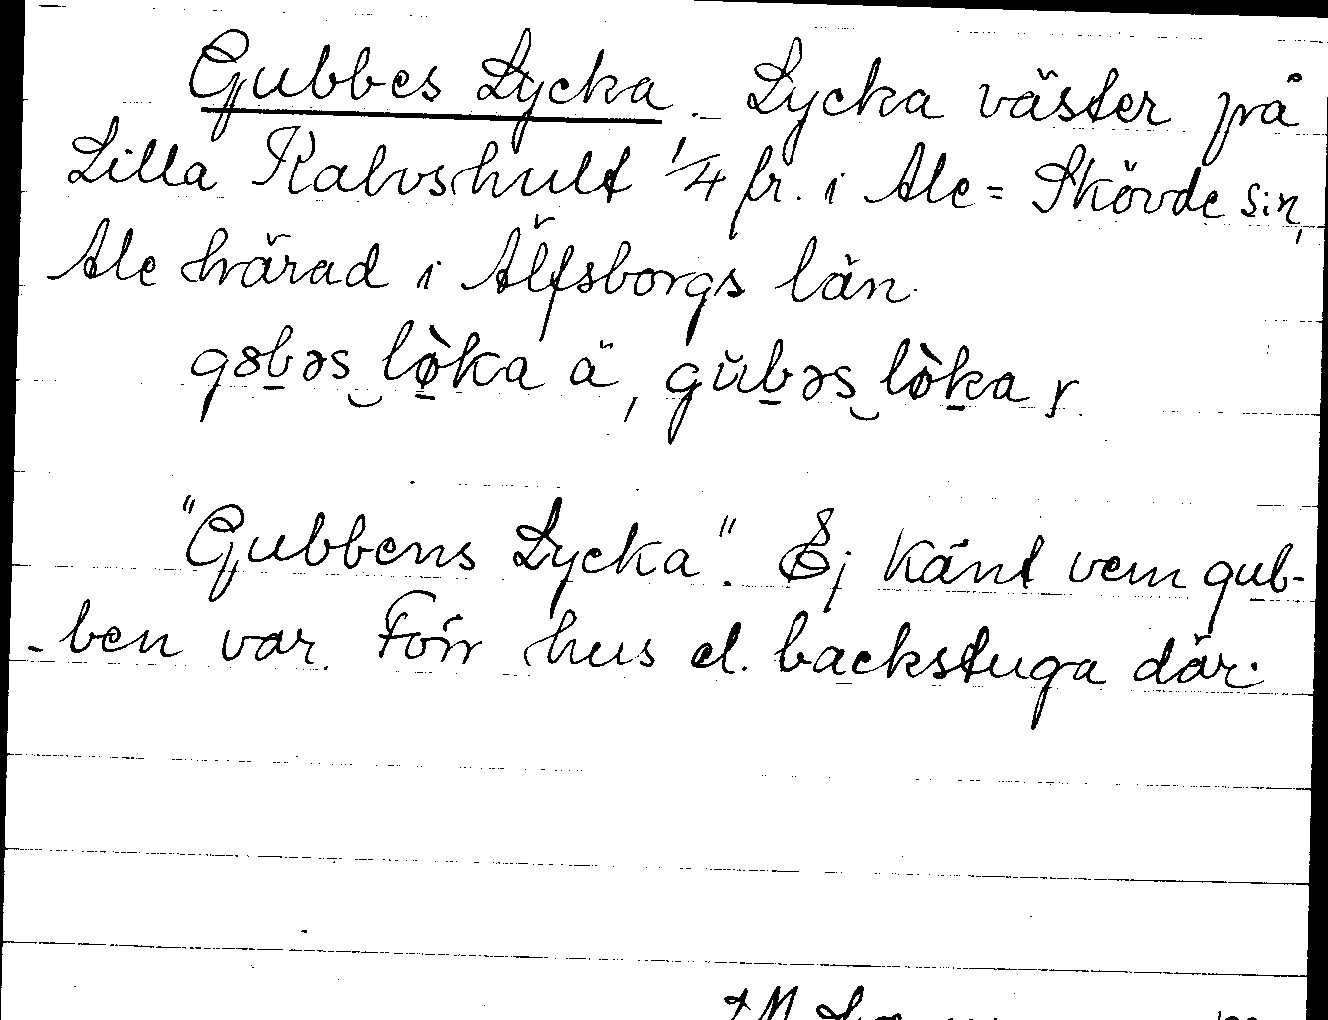 Gubbes Lycka. Lycka väster på
Lilla Kalvshult 1/4 fr. i Ale=Skövde s:n,
Ale härad i Älfsborgs län.
gɵbəs lø̀ka ä, gŭbəs lòka y.
"Gubbens Lycka". Ej känt vem gub-
-ben var. Förr hus el. backstuga där.